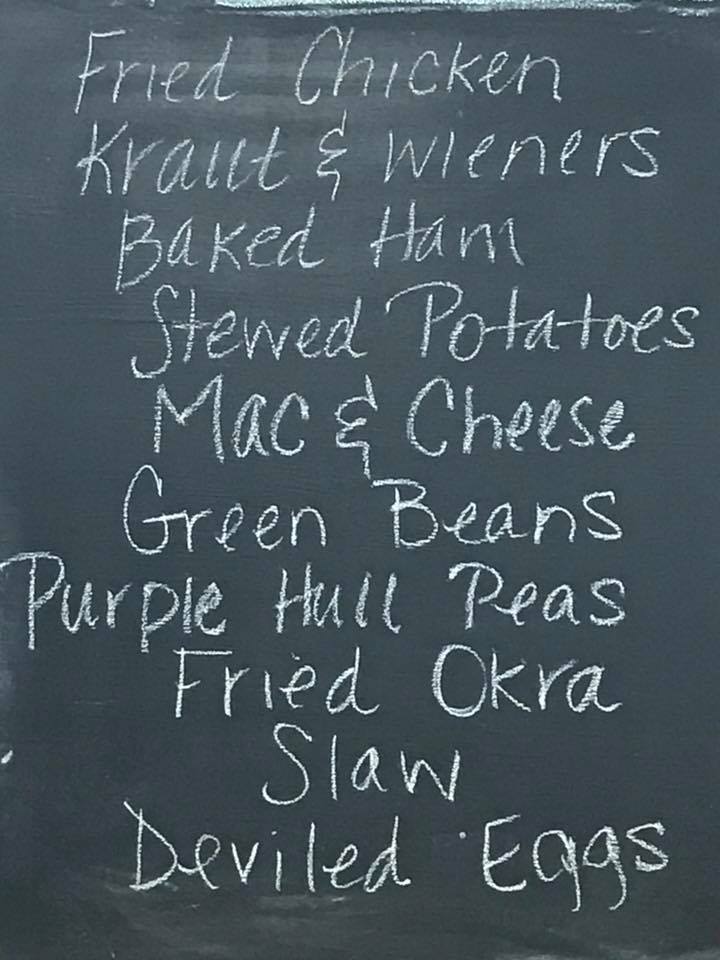 Fried Chicken
Kraut & Wieners
Baked Ham
Stewed Potatoes
Mac & Cheese
Green Beans
Purple Hull Peas
Fried Okra
Slaw
Deviled Eggs